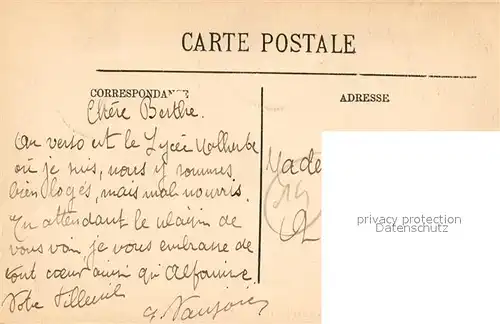 CARTE POSTALE
CORRESPONDANCE
ADRESSE
Chère Berthe.
Au verso est le Lycée Malherbe
où je suis, nous y sommes
bien logés, mais mal nourris.
En attendant le plaisir de
vous voir, je vous embrasse de
tout cœur ainsi qu'Alphonsine.
Votre Filleul
Made
privacy protection
Datenschutz